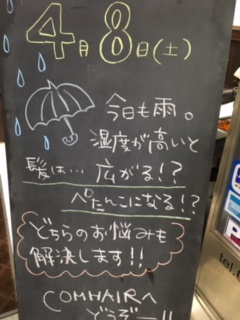 4月8日(土)
今日も雨。
湿度が高いと
髪は… 広がる!?
ぺたんこになる!?
どちらのお悩みも
解決します!!
COMHAIRへ
どうぞー!!
tel